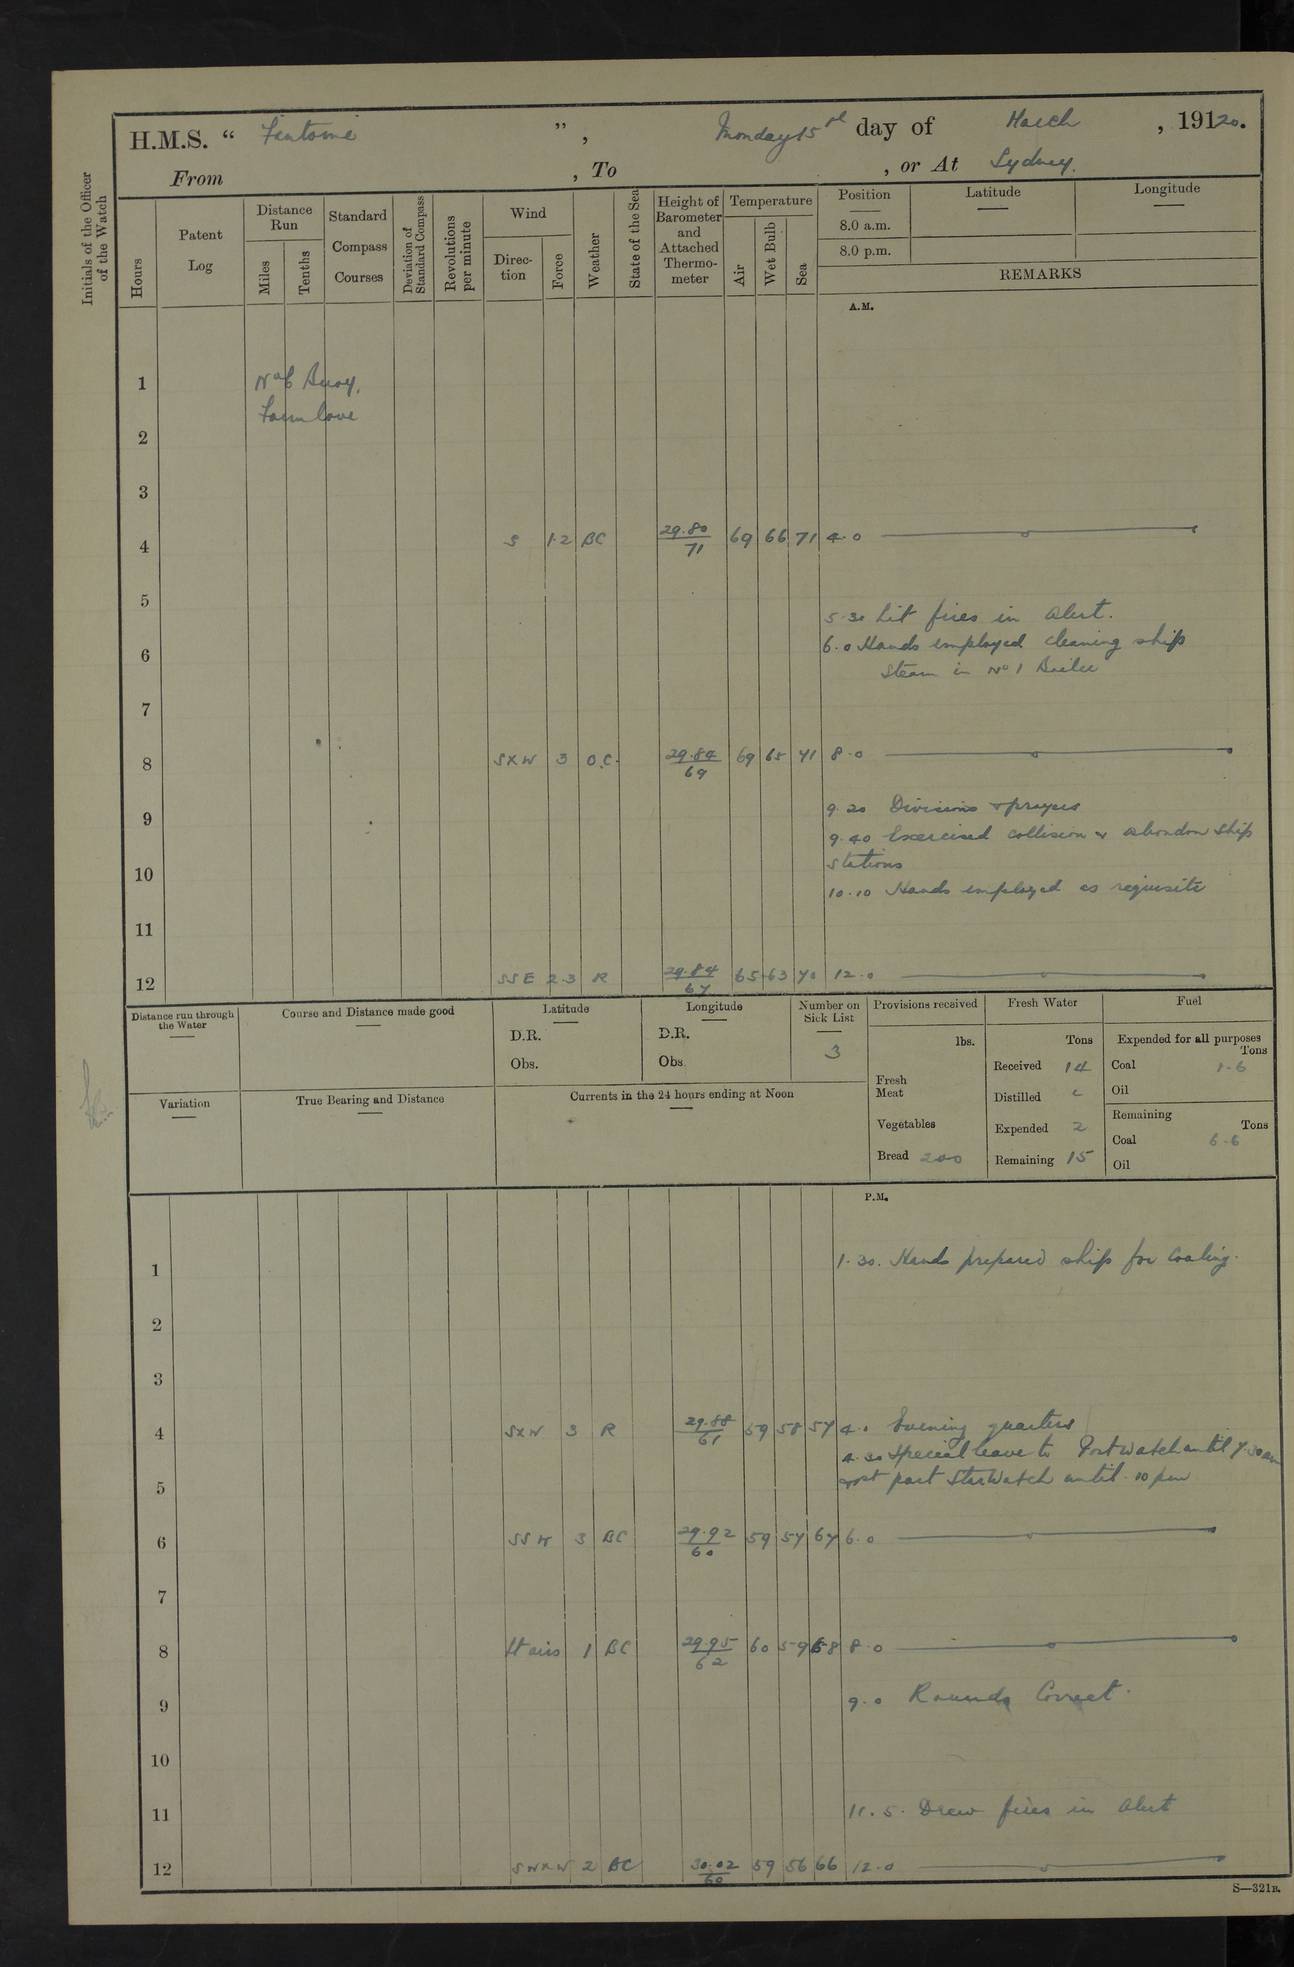 H.M.S. “ Fantome ” , Monday 15th day of March , 19120.
From , To , or At Sydney.
Initials of the Officer of the Watch
Hours
Patent Log
Distance Run
Miles
Tenths
Standard Compass Courses
Deviation of Standard Compass
Revolutions per minute
Wind
Direction
Force
Weather
State of the Sea
Height of Barometer and Attached Thermometer
Temperature
Air
Wet Bulb
Sea
Position
8.0 a.m.
8.0 p.m.
Latitude
Longitude
REMARKS
A.M.
1 No 6 Buoy.
Farm Cove
2
3
4 S 1.2 BC 29.80 71 69 66 71 4.0
5
5.30 Lit fires in Alert.
6 6.0 Hands employed cleaning ship
Steam in No 1 Boiler
7
8 SXW 3 O.C. 29.84 69 69 65 71 8.0
9 9.20 Divisions & prayers
9.40 Exercised collision & abandon ship
stations
10 10.10 Hands employed as requisite
11
12 SSE 2.3 R 29.84 67 65 63 70 12.0
Distance run through the Water
Course and Distance made good
Latitude
D.R.
Obs.
Longitude
D.R.
Obs
Number on Sick List
3
Provisions received
lbs.
Fresh Meat
Vegetables
Bread 200
Fresh Water
Tons
Received 14
Distilled
Expended 2
Remaining 15
Fuel
Expended for all purposes
Tons
Coal 1.6
Oil
Remaining
Tons
Coal 6.6
Oil
Variation
True Bearing and Distance
Currents in the 24 hours ending at Noon
P.M.
1 1.30. Hands prepared ship for Coaling.
2
3
4 SXW 3 R 29.88 61 59 58 57 4.0 Evening quarters
4.30 Special leave to Port Watch until 7.30 am
part Star Watch until 10 pm
5
6 SSW 3 BC 29.92 60 59 57 67 6.0
7
8 Lt airs 1 BC 29.95 62 60 59 68 8.0
9 9.0 Rounds Correct.
10
11 11.5. Drew fires in Alert
12 SWXW 2 BC 30.02 60 59 56 66 12.0
S—321B.